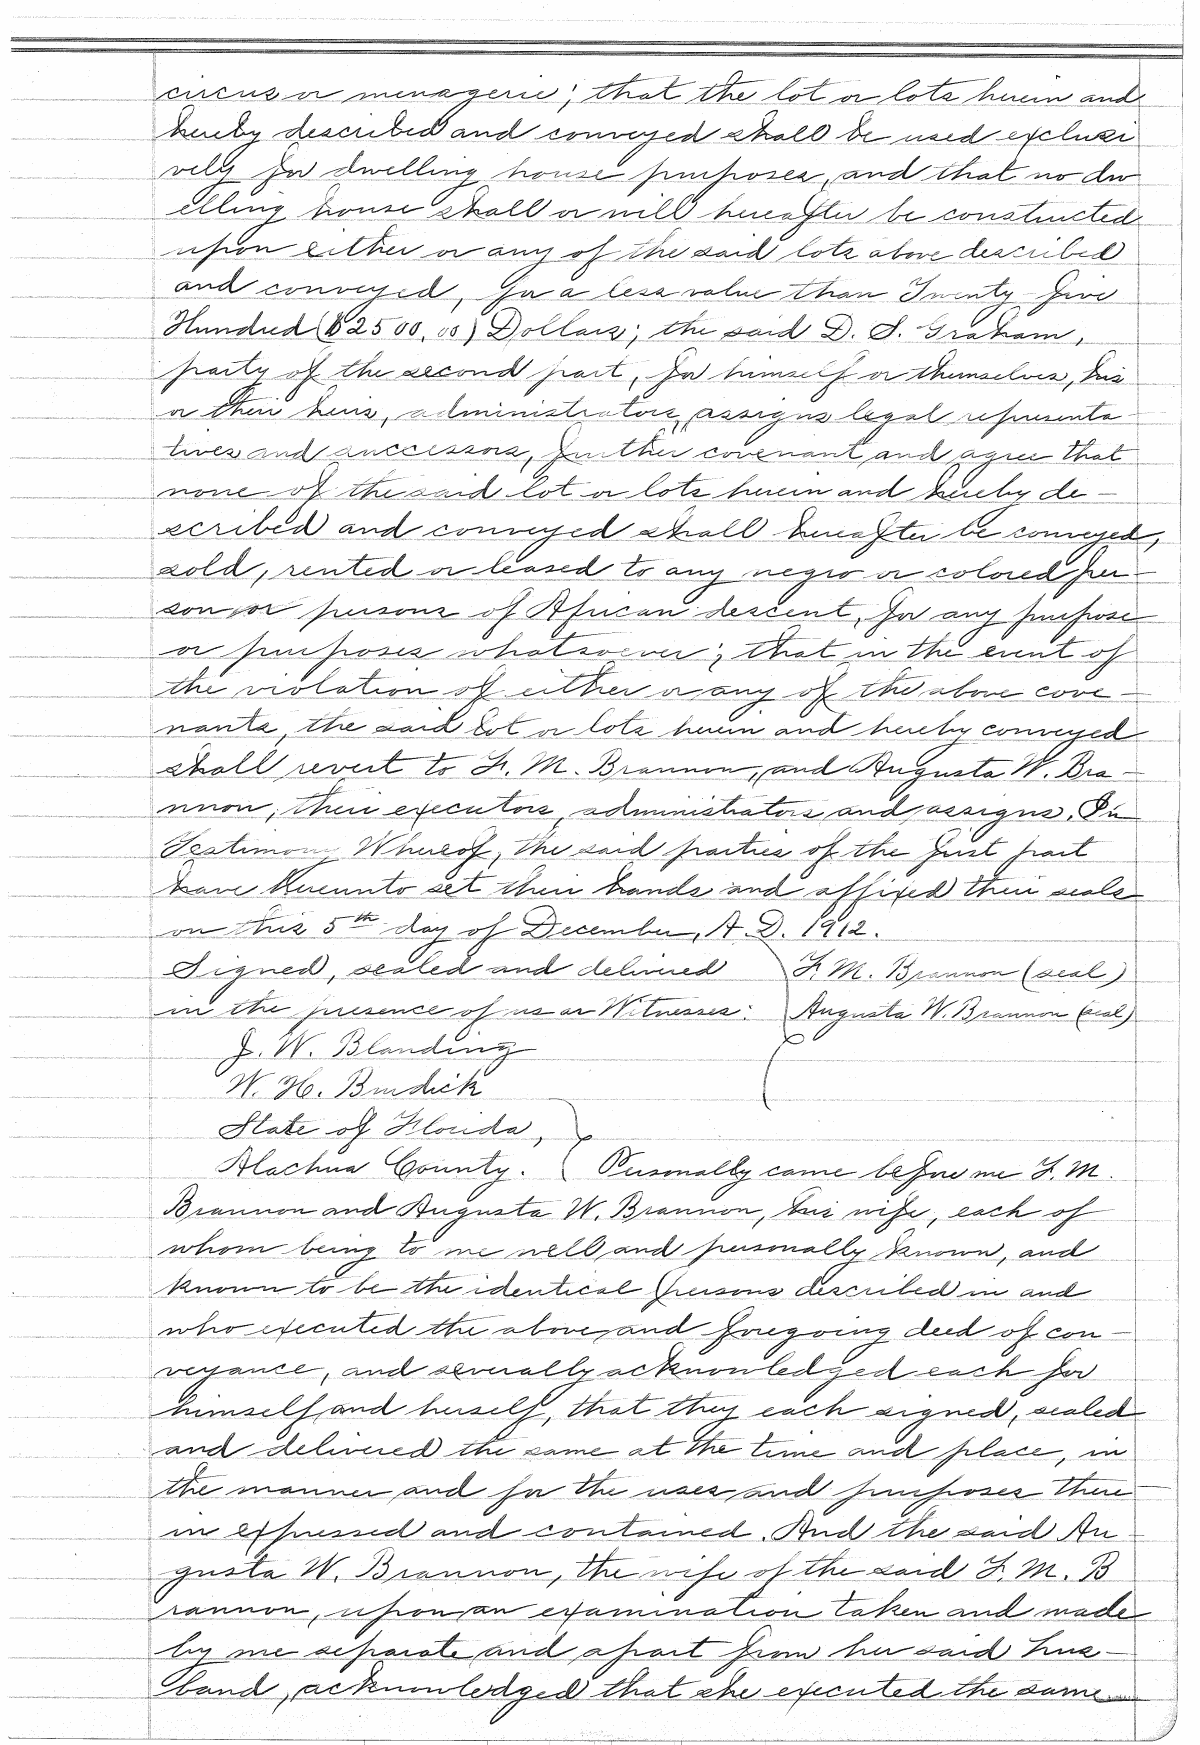 circus or menagerie; that the lot or lots herein and
hereby described and conveyed shall be used exclusi
vely for dwelling house purposes, and that no dw
elling house shall or will hereafter be constructed
upon either or any of the said lots above described
and conveyed, for a less value than Twenty-five
Hundred ($2500.00) Dollars; the said D. S. Graham,
party of the second part, for himself or themselves, his
or their heirs, administrators, assigns legal representa-
tives and successors, further covenant and agree that
none of the said lot or lots herein and hereby de-
scribed and conveyed shall hereafter be conveyed,
sold, rented or leased to any negro or colored per-
son or persons of African descent, for any purpose
or purposes whatsoever; that in the event of
the violation of either or any of the above cove-
nants, the said lot or lots herein and hereby conveyed
shall revert to F. M. Brannon, and Augusta W. Bra-
nnon, their executors, administrators and assigns. In
Testimony Whereof, the said parties of the first part
have hereunto set their hands and affixed their seals
on this 5th day of December, A.D. 1912.
Signed, sealed and delivered F. M. Brannon (seal)
in the presence of us as Witnesses: Augusta W. Brannon (seal)
J. W. Blanding
W. H. Burdick
State of Florida,
Alachua County. Personally came before me F. M.
Brannon and Augusta W. Brannon, his wife, each of
whom being to me well and personally known, and
known to be the identical persons described in and
who executed the above and foregoing deed of con-
veyance, and severally acknowledged each for
himself and herself, that they each signed, sealed
and delivered the same at the time and place, in
the manner and for the uses and purposes there-
in expressed and contained. And the said Au-
gusta W. Brannon, the wife of the said F. M. B
rannon, upon an examination taken and made
by me separate and apart from her said hus-
band, acknowledged that she executed the same